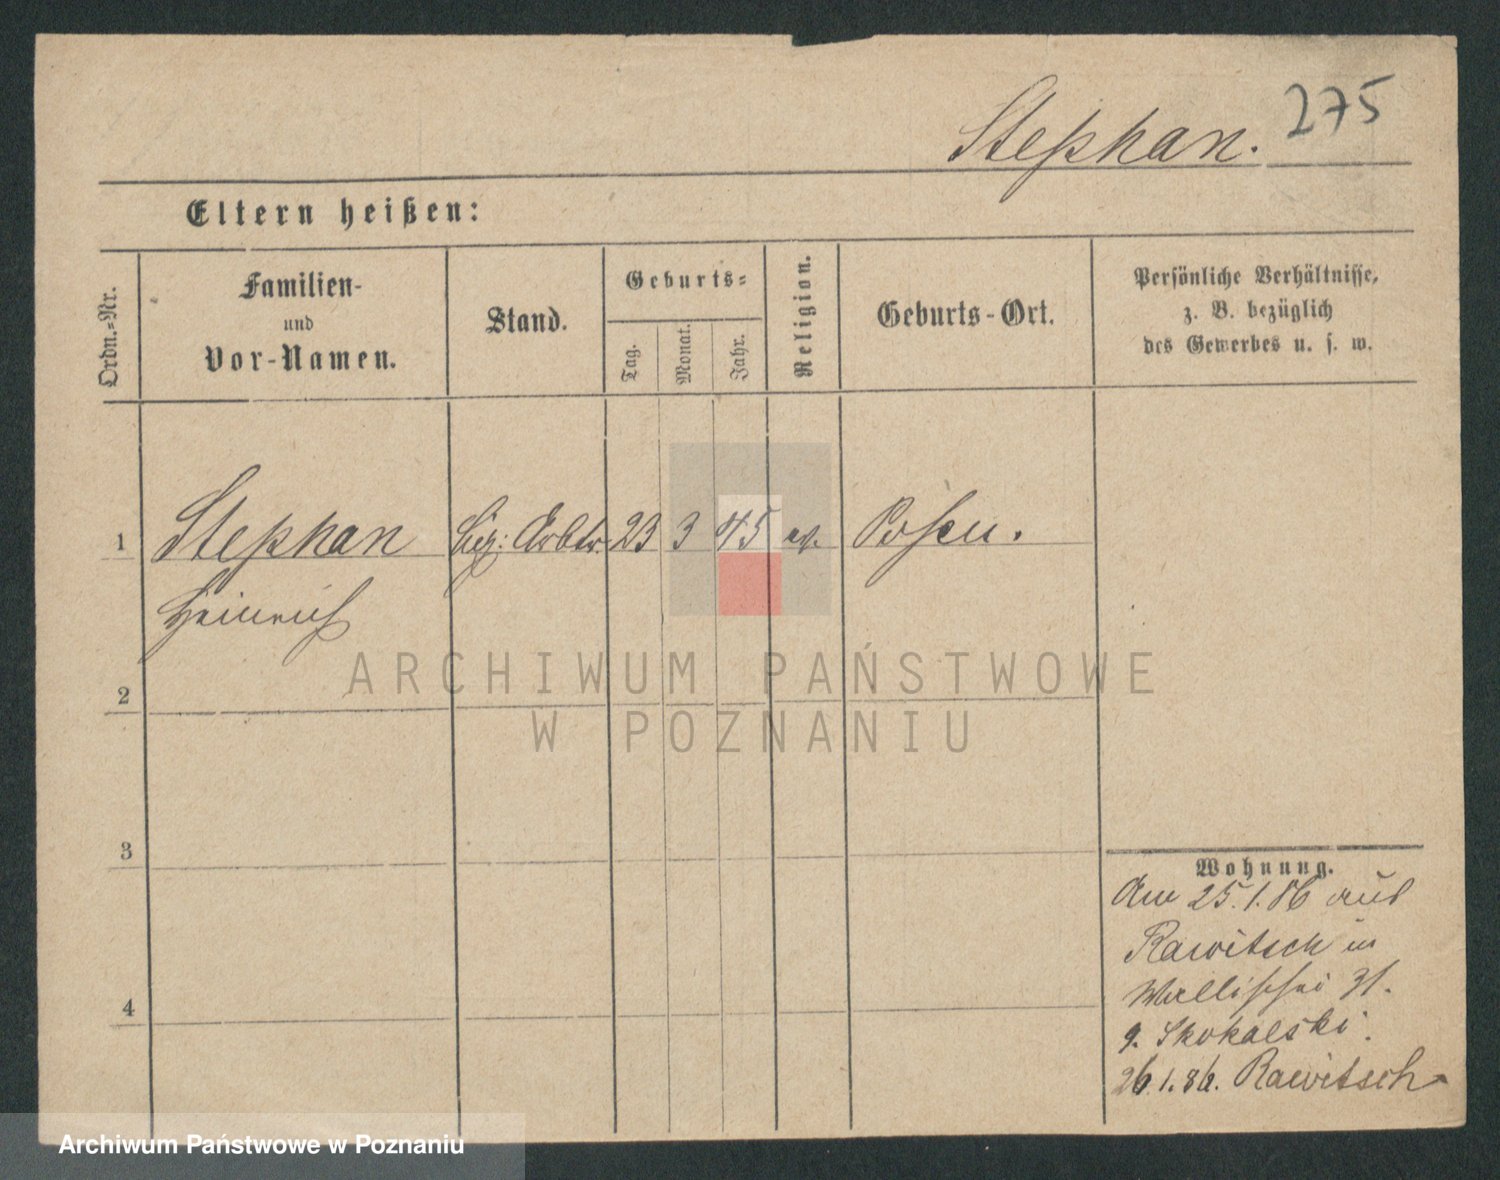 275
Stephan.
Eltern heißen:
Ordn.-Nr.
Familien-
und
Vor-Namen.
Stand.
Geburts-
Tag.
Monat.
Jahr.
Religion.
Geburts-Ort.
Persönliche Verhältnisse,
z. B. bezüglich
des Gewerbes u. s. w.
1 Stephan Cig: Arbtr. 23 3 45 ev. Posen.
Heinrich
2
3
4
Wohnung.
Am 25.1.86 aus
Rawitsch in
Wallischei 31.
Skokalski.
26.1.86. Rawitsch
ARCHIWUM PAŃSTWOWE
W POZNANIU
Archiwum Państwowe w Poznaniu